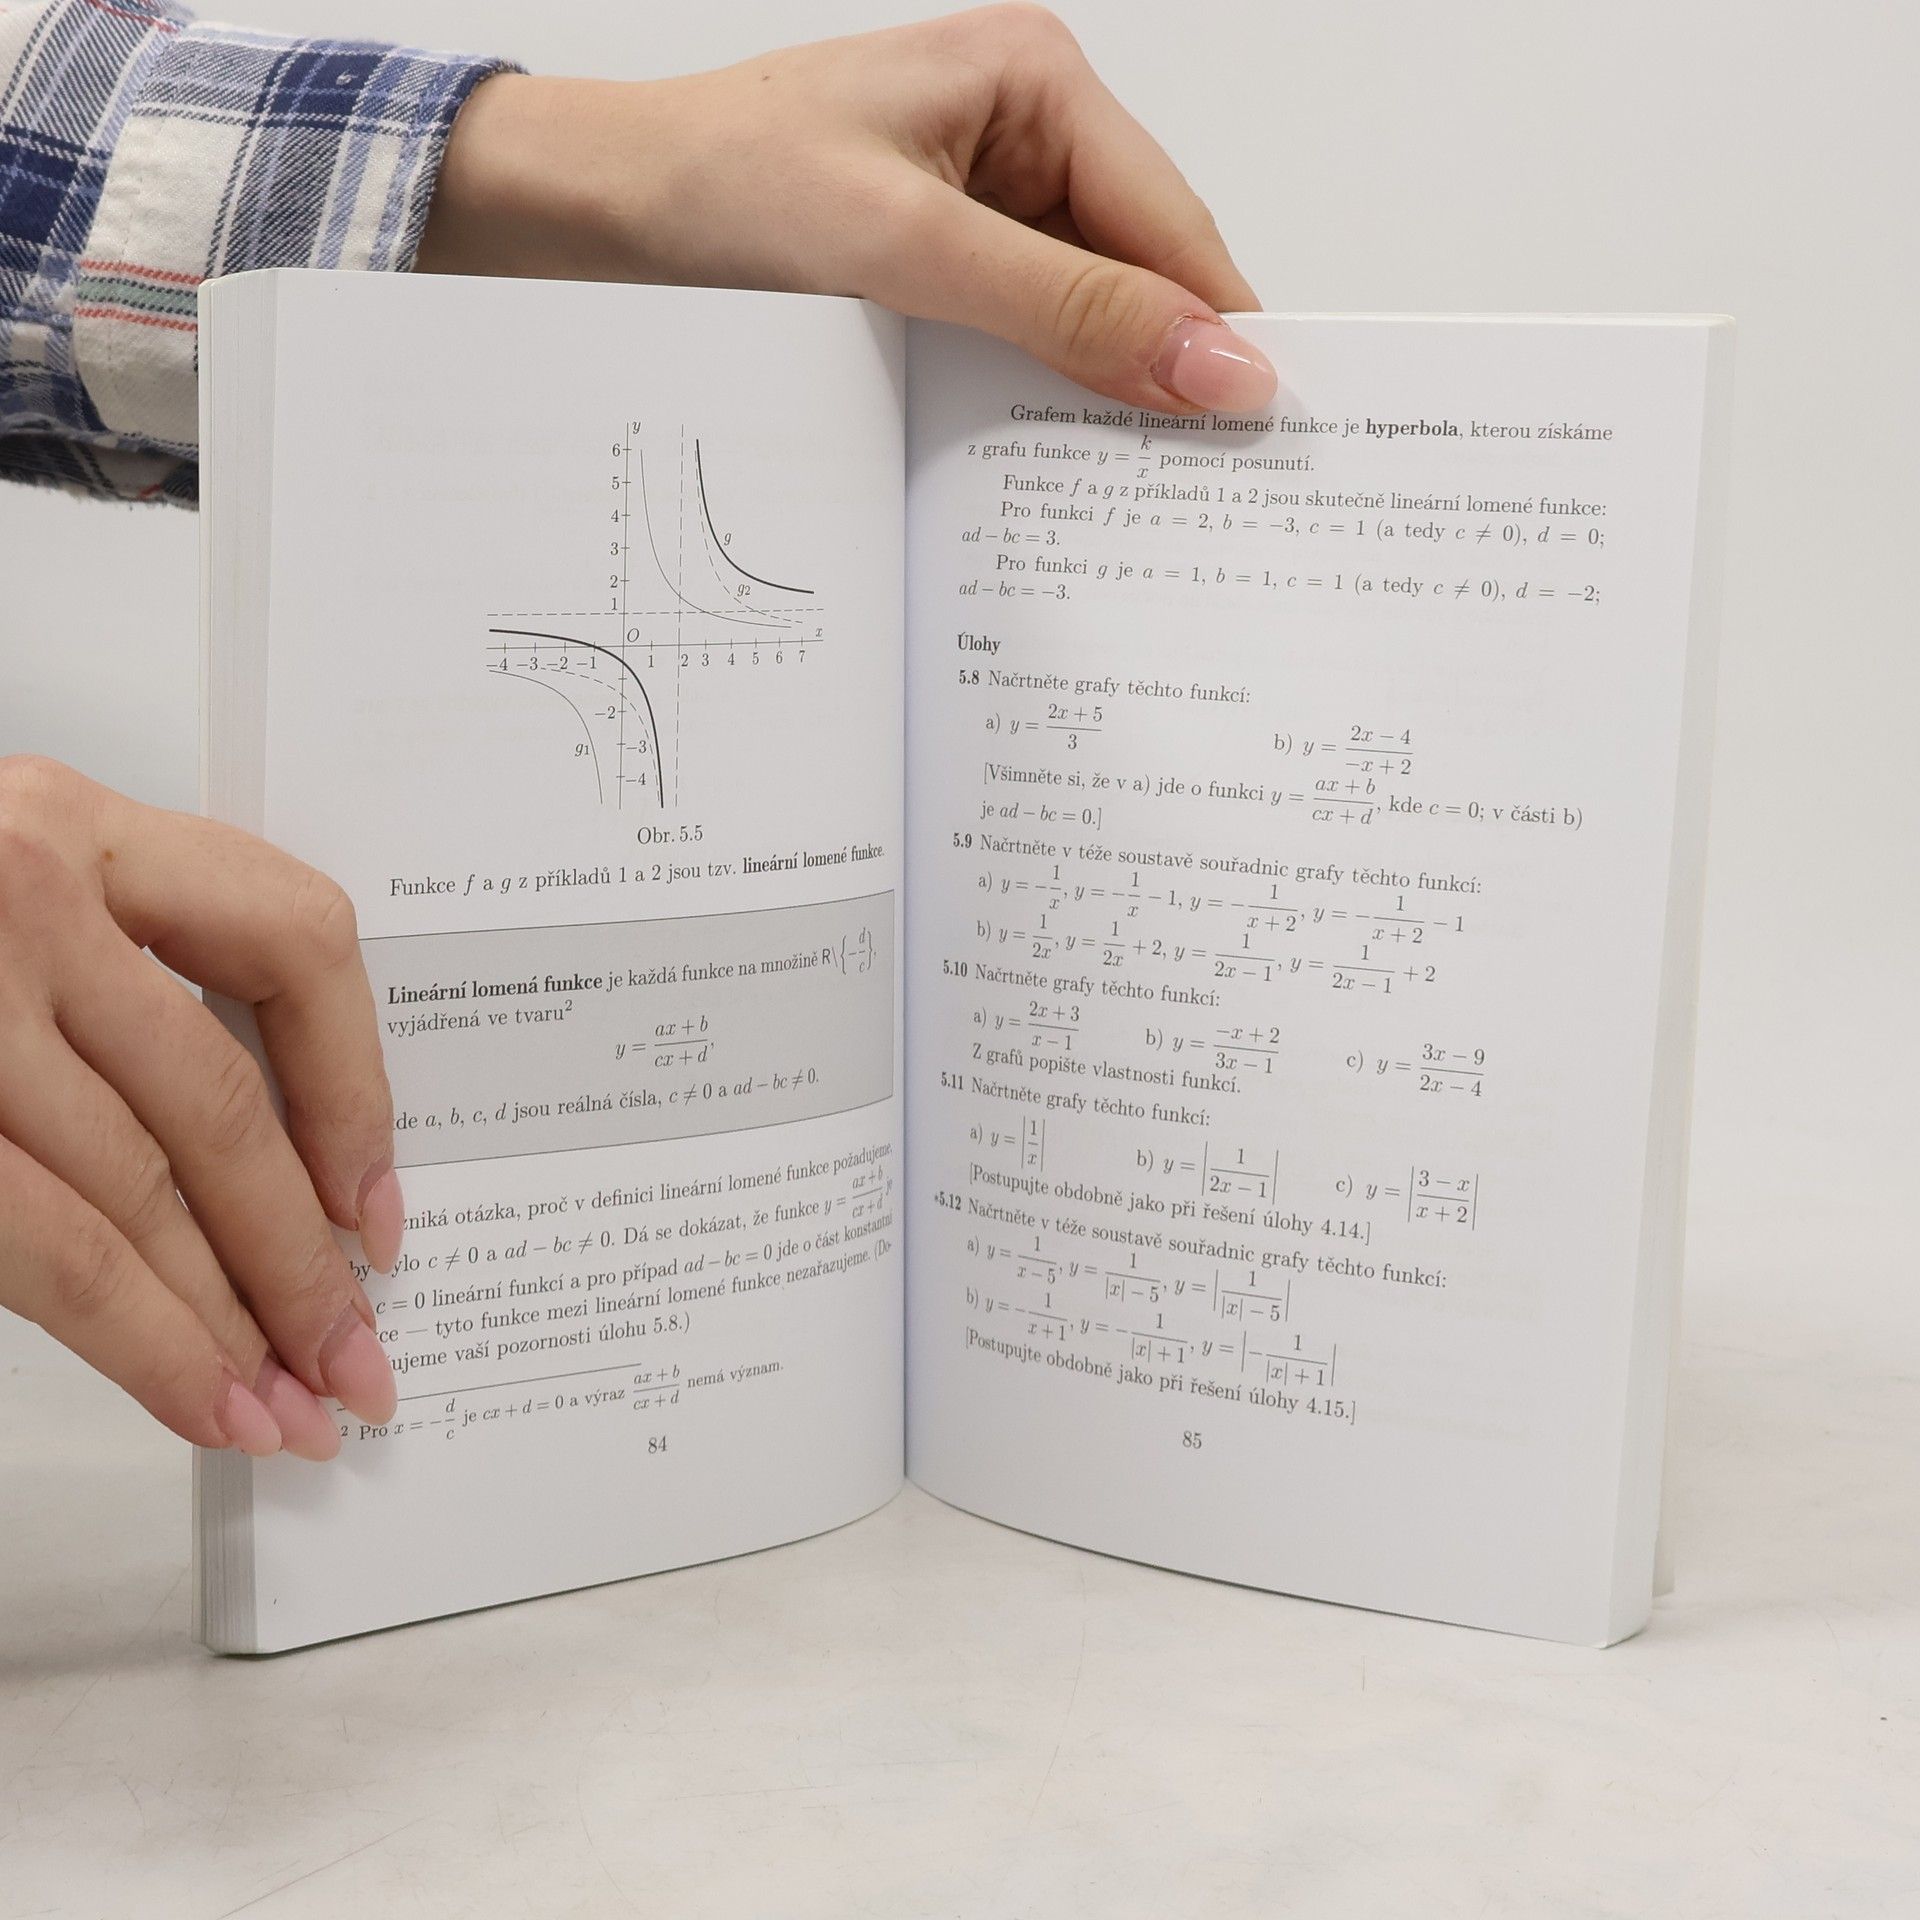 y
6
5
4
3
2
1
g
g₂
O
x
−4 −3 −2 −1 1 2 3 4 5 6 7
−2
g₁
−3
−4
Obr. 5.5
Funkce f a g z příkladů 1 a 2 jsou tzv. lineární lomené funkce.
Lineární lomená funkce je každá funkce na množině R\{−d/c},
vyjádřená ve tvaru²
y = (ax + b)/(cx + d),
de a, b, c, d jsou reálná čísla, c ≠ 0 a ad − bc ≠ 0.
zniká otázka, proč v definici lineární lomené funkce požadujeme,
by ylo c ≠ 0 a ad − bc ≠ 0. Dá se dokázat, že funkce y = (ax + b)/(cx + d) je
c = 0 lineární funkcí a pro případ ad − bc = 0 jde o část konstantní
ce — tyto funkce mezi lineární lomené funkce nezařazujeme. (Do-
ujeme vaší pozornosti úlohu 5.8.)
² Pro x = −d/c je cx + d = 0 a výraz (ax + b)/(cx + d) nemá význam.
84
Grafem každé lineární lomené funkce je hyperbola, kterou získáme
z grafu funkce y = k/x pomocí posunutí.
Funkce f a g z příkladů 1 a 2 jsou skutečně lineární lomené funkce:
Pro funkci f je a = 2, b = −3, c = 1 (a tedy c ≠ 0), d = 0;
ad − bc = 3.
Pro funkci g je a = 1, b = 1, c = 1 (a tedy c ≠ 0), d = −2;
ad − bc = −3.
Úlohy
5.8 Načrtněte grafy těchto funkcí:
a) y = (2x + 5)/3 b) y = (2x − 4)/(−x + 2)
[Všimněte si, že v a) jde o funkci y = (ax + b)/(cx + d), kde c = 0; v části b)
je ad − bc = 0.]
5.9 Načrtněte v téže soustavě souřadnic grafy těchto funkcí:
a) y = −1/x, y = −1/x − 1, y = −1/(x + 2), y = −1/(x + 2) − 1
b) y = 1/(2x), y = 1/(2x) + 2, y = 1/(2x − 1), y = 1/(2x − 1) + 2
5.10 Načrtněte grafy těchto funkcí:
a) y = (2x + 3)/(x − 1) b) y = (−x + 2)/(3x − 1) c) y = (3x − 9)/(2x − 4)
Z grafů popište vlastnosti funkcí.
5.11 Načrtněte grafy těchto funkcí:
a) y = |1/x| b) y = |1/(2x − 1)| c) y = |(3 − x)/(x + 2)|
[Postupujte obdobně jako při řešení úlohy 4.14.]
*5.12 Načrtněte v téže soustavě souřadnic grafy těchto funkcí:
a) y = 1/(x − 5), y = 1/(|x| − 5), y = |1/(|x| − 5)|
b) y = −1/(x + 1), y = −1/(|x| + 1), y = |−1/(|x| + 1)|
[Postupujte obdobně jako při řešení úlohy 4.15.]
85